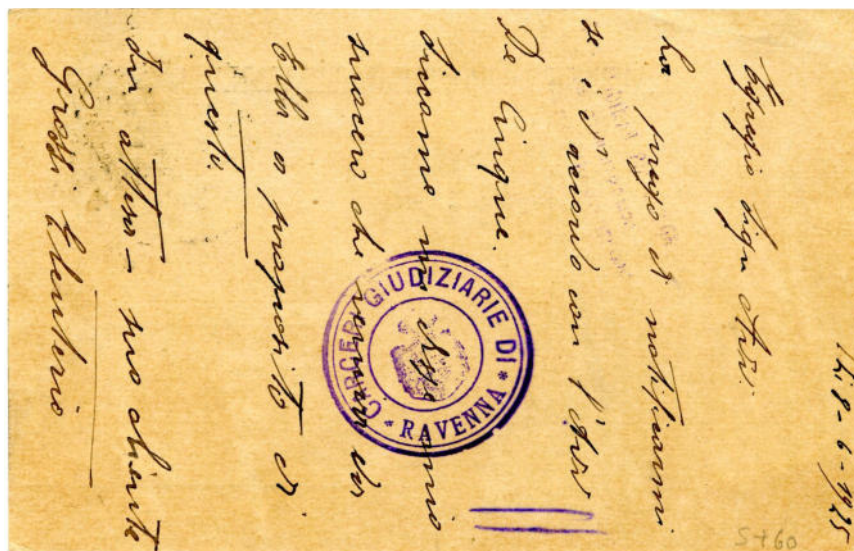 8-6-1925
Egregio Sign. Avv.
La prego di notificarmi
se è accordo con l'Avv
De Cinque.
mio
suocero che da
Ella a proposito di
questo.
In attesa - suo cliente
Grossi Eleuterio
CARCERI GIUDIZIARIE DI
* RAVENNA *
S+60